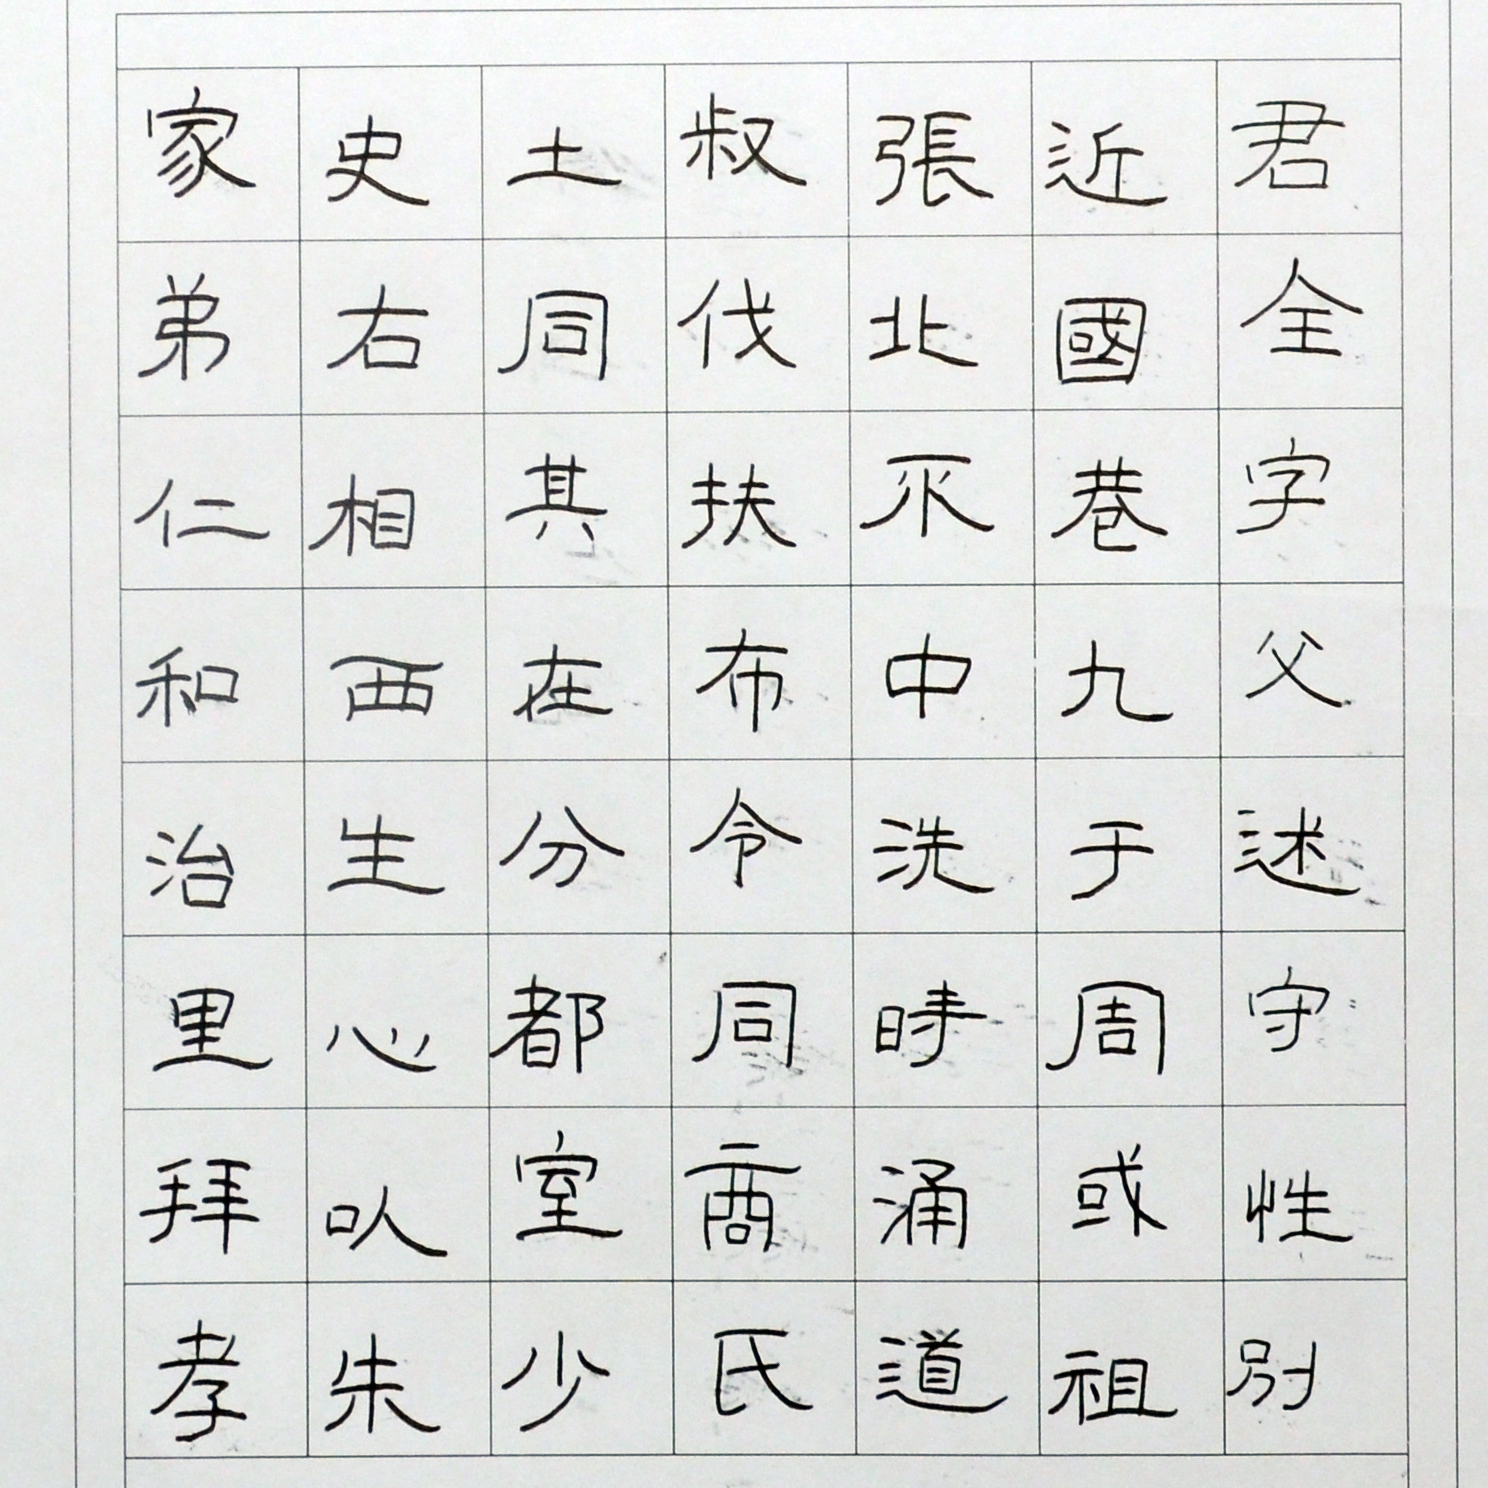 君全字父述守性別
近國巷九于周或祖
張北不中洗時涌道
叔伐扶布令同商氏
土同其在分都室少
史右相西生心以朱
家弟仁和治里拜孝